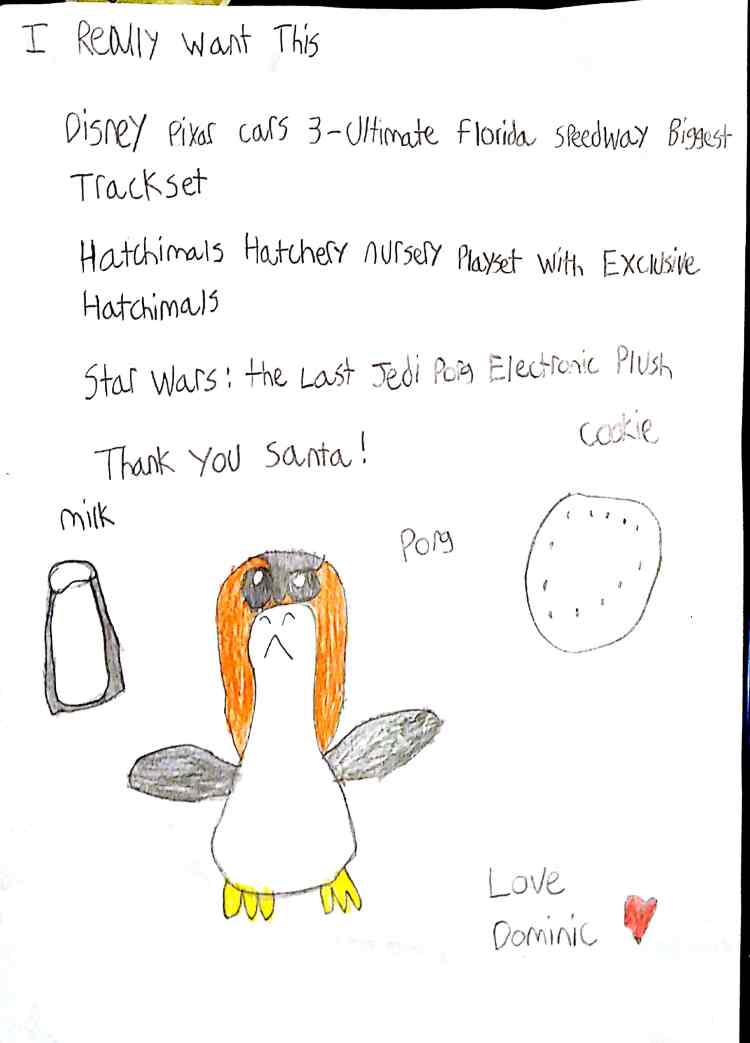 I Really Want This
Disney Pixar cars 3-Ultimate Florida speedway Biggest
Trackset
Hatchimals Hatchery nursery Playset with Exclusive
Hatchimals
Star Wars: the Last Jedi Porg Electronic Plush
Thank you santa!
cookie
milk
Porg
Love
Dominic